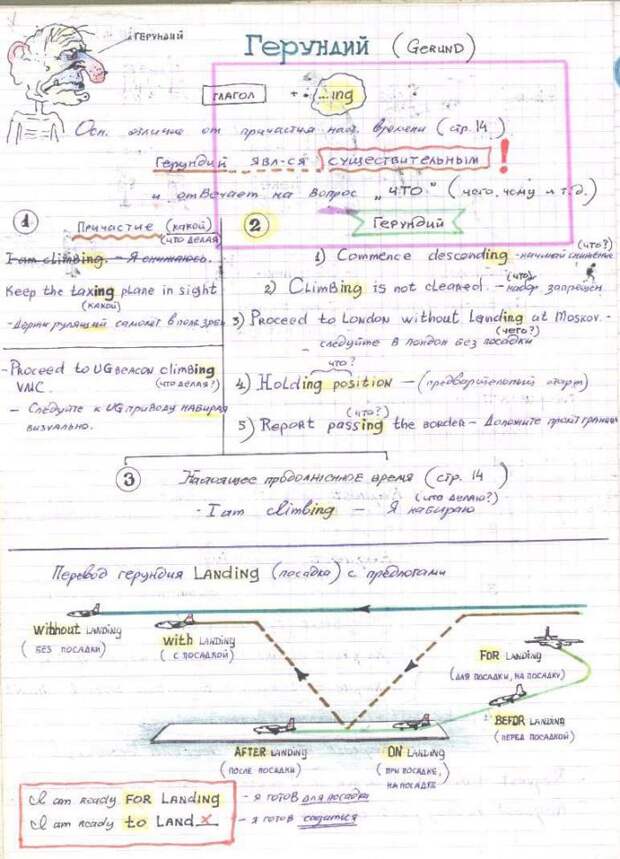 ГЕРУНДИЙ
Герундий (GERUND)
ГЛАГОЛ + ...ing
Осн. отличие от причастия наст. времени (стр. 14)
Герундий явл-ся существительным!
и отвечает на вопрос „что" (чего, чому и т.д.)
1 Причастие (какой)
(что делая)
I am climbing. – Я снижаюсь.
Keep the taxing plane in sight
(какой)
- Держи рулящий самолет в поле зрен
- Proceed to UG BEACON climbing
VMC. (что делая?)
- Следуйте к UG приводу набирая
визуально.
2 Герундий
(что?)
1) Commence desconding - начинай снижение
(что)
2) Climbing is not cleared. – набор запрещен
3) Proceed to London without Landing at Moskov. -
(чего?)
- следуйте в Лондон без посадки
что?
4) Holding position – (предварительный старт)
(что?)
5) Report passing the border – Доложите пролёт границы
3 Настоящее продолженное время (стр. 14)
(что делаю?)
- I am climbing – Я набираю
Перевод герундия LANDING (посадка) с предлогами
without LANDING
(БЕЗ ПОСАДКИ)
with LANDING
(С ПОСАДКОЙ)
FOR LANDING
(ДЛЯ ПОСАДКИ, НА ПОСАДКУ)
BEFOR LANDING
(ПЕРЕД ПОСАДКОЙ)
AFTER LANDING
(ПОСЛЕ ПОСАДКИ)
ON LANDING
(ПРИ ПОСАДКЕ,
НА ПОСАДКЕ)
I am ready FOR LANDING - я готов для посадки
I am ready to LAND x - я готов садиться